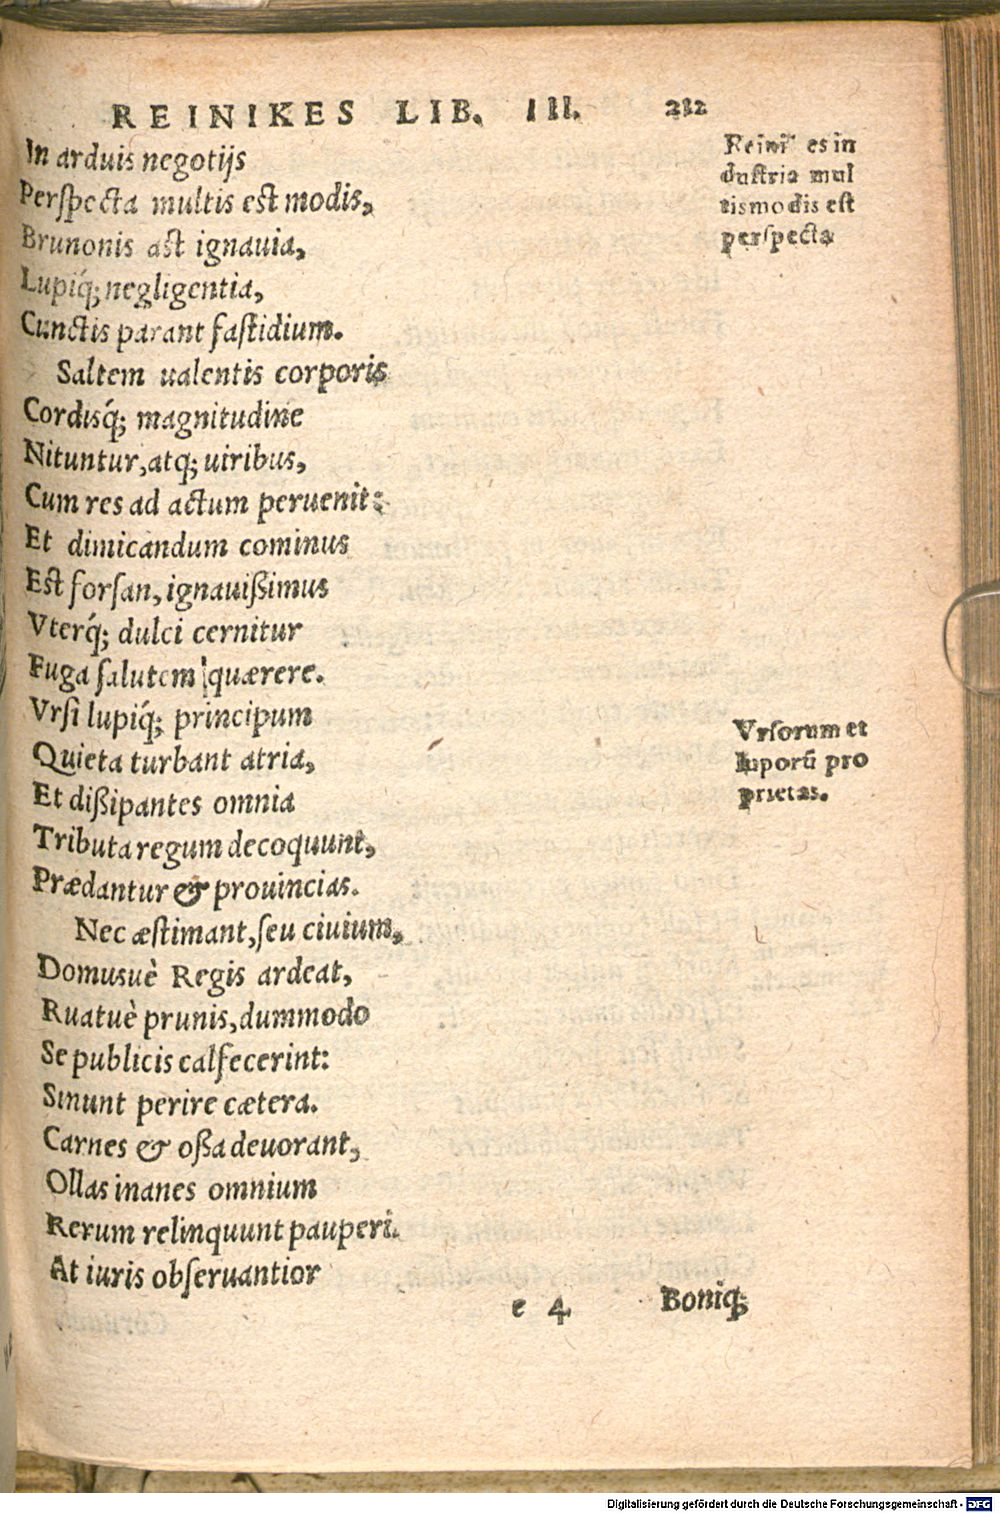 REINIKES LIB. III. 212
In arduis negotijs
Perſpecta multis est modis,
Brunonis ast ignauia,
Lupiq́; negligentia,
Cunctis parant faſtidium.
Saltem ualentis corporis
Cordisq́; magnitudine
Nituntur, atq; uiribus,
Cum res ad actum peruenit:
Et dimicandum cominus
Est forſan, ignauißimus
Vterq́; dulci cernitur
Fuga ſalutem quærere.
Vrſi lupiq́; principum
Quieta turbant atria,
Et dißipantes omnia
Tributa regum decoquunt,
Prædantur & prouincias.
Nec æſtimant, ſeu ciuium,
Domusuè Regis ardeat,
Ruatuè prunis, dummodo
Se publicis calfecerint:
Sinunt perire cætera.
Carnes & oßa deuorant,
Ollas inanes omnium
Rerum relinquunt pauperi.
At iuris obſeruantior
e 4 Boniq;
Reini es in
duſtria mul
tismodis eſt
perſpecta
Vrſorum et
luporū pro
prietas.
Digitalisierung gefördert durch die Deutsche Forschungsgemeinschaft - DFG